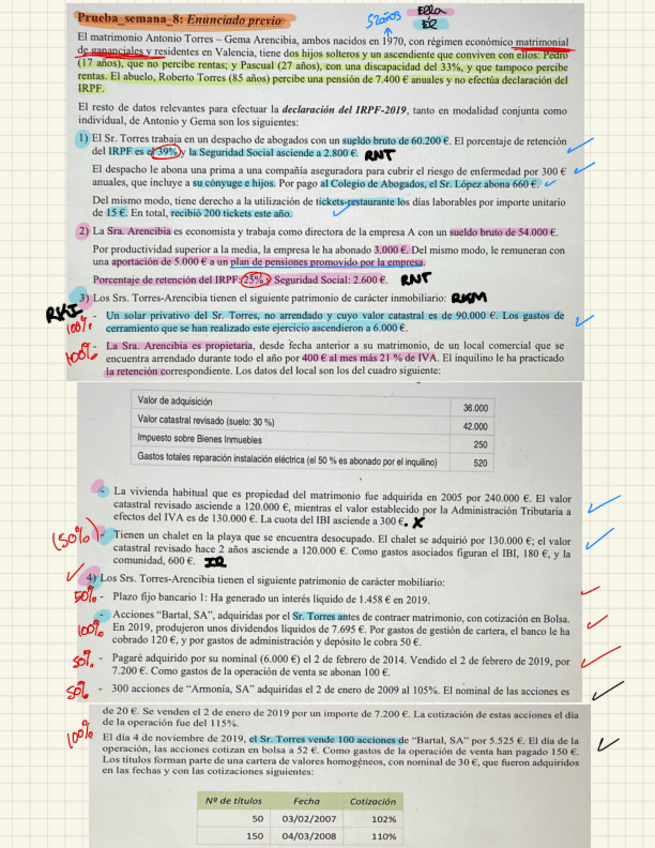 Prueba_semana_8: Enunciado previo
52años
Ella
Él
El matrimonio Antonio Torres – Gema Arencibia, ambos nacidos en 1970, con régimen económico matrimonial
de gananciales y residentes en Valencia, tiene dos hijos solteros y un ascendiente que conviven con ellos: Pedro
(17 años), que no percibe rentas; y Pascual (27 años), con una discapacidad del 33%, y que tampoco percibe
rentas. El abuelo, Roberto Torres (85 años) percibe una pensión de 7.400 € anuales y no efectúa declaración del
IRPF.
El resto de datos relevantes para efectuar la declaración del IRPF-2019, tanto en modalidad conjunta como
individual, de Antonio y Gema son los siguientes:
1) El Sr. Torres trabaja en un despacho de abogados con un sueldo bruto de 60.200 €. El porcentaje de retención
del IRPF es el 39% y la Seguridad Social asciende a 2.800 €. RNT
El despacho le abona una prima a una compañía aseguradora para cubrir el riesgo de enfermedad por 300 €
anuales, que incluye a su cónyuge e hijos. Por pago al Colegio de Abogados, el Sr. López abona 660 €.
Del mismo modo, tiene derecho a la utilización de tickets-restaurante los días laborables por importe unitario
de 15 €. En total, recibió 200 tickets este año.
2) La Sra. Arencibia es economista y trabaja como directora de la empresa A con un sueldo bruto de 54.000 €.
Por productividad superior a la media, la empresa le ha abonado 3.000 €. Del mismo modo, le remuneran con
una aportación de 5.000 € a un plan de pensiones promovido por la empresa.
Porcentaje de retención del IRPF: 25%. Seguridad Social: 2.600 €. RNT
3) Los Srs. Torres-Arencibia tienen el siguiente patrimonio de carácter inmobiliario:
100% - Un solar privativo del Sr. Torres, no arrendado y cuyo valor catastral es de 90.000 €. Los gastos de
cerramiento que se han realizado este ejercicio ascendieron a 6.000 €.
100% - La Sra. Arencibia es propietaria, desde fecha anterior a su matrimonio, de un local comercial que se
encuentra arrendado durante todo el año por 400 € al mes más 21 % de IVA. El inquilino le ha practicado
la retención correspondiente. Los datos del local son los del cuadro siguiente:
Valor de adquisición 36.000
Valor catastral revisado (suelo: 30 %) 42.000
Impuesto sobre Bienes Inmuebles 250
Gastos totales reparación instalación eléctrica (el 50 % es abonado por el inquilino) 520
- La vivienda habitual que es propiedad del matrimonio fue adquirida en 2005 por 240.000 €. El valor
catastral revisado asciende a 120.000 €, mientras el valor establecido por la Administración Tributaria a
efectos del IVA es de 130.000 €. La cuota del IBI asciende a 300 €. X
(50%) - Tienen un chalet en la playa que se encuentra desocupado. El chalet se adquirió por 130.000 €; el valor
catastral revisado hace 2 años asciende a 120.000 €. Como gastos asociados figuran el IBI, 180 €, y la
comunidad, 600 €.
4) Los Srs. Torres-Arencibia tienen el siguiente patrimonio de carácter mobiliario:
50% - Plazo fijo bancario 1: Ha generado un interés líquido de 1.458 € en 2019.
- Acciones “Bartal, SA”, adquiridas por el Sr. Torres antes de contraer matrimonio, con cotización en Bolsa.
100% En 2019, produjeron unos dividendos líquidos de 7.695 €. Por gastos de gestión de cartera, el banco le ha
cobrado 120 €, y por gastos de administración y depósito le cobra 50 €.
50% - Pagaré adquirido por su nominal (6.000 €) el 2 de febrero de 2014. Vendido el 2 de febrero de 2019, por
7.200 €. Como gastos de la operación de venta se abonan 100 €.
50% - 300 acciones de “Armonía, SA” adquiridas el 2 de enero de 2009 al 105%. El nominal de las acciones es
de 20 €. Se venden el 2 de enero de 2019 por un importe de 7.200 €. La cotización de estas acciones el día
de la operación fue del 115%.
100% El día 4 de noviembre de 2019, el Sr. Torres vende 100 acciones de “Bartal, SA” por 5.525 €. El día de la
operación, las acciones cotizan en bolsa a 52 €. Como gastos de la operación de venta han pagado 150 €.
Los títulos forman parte de una cartera de valores homogéneos, con nominal de 30 €, que fueron adquiridos
en las fechas y con las cotizaciones siguientes:
Nº de títulos Fecha Cotización
50 03/02/2007 102%
150 04/03/2008 110%